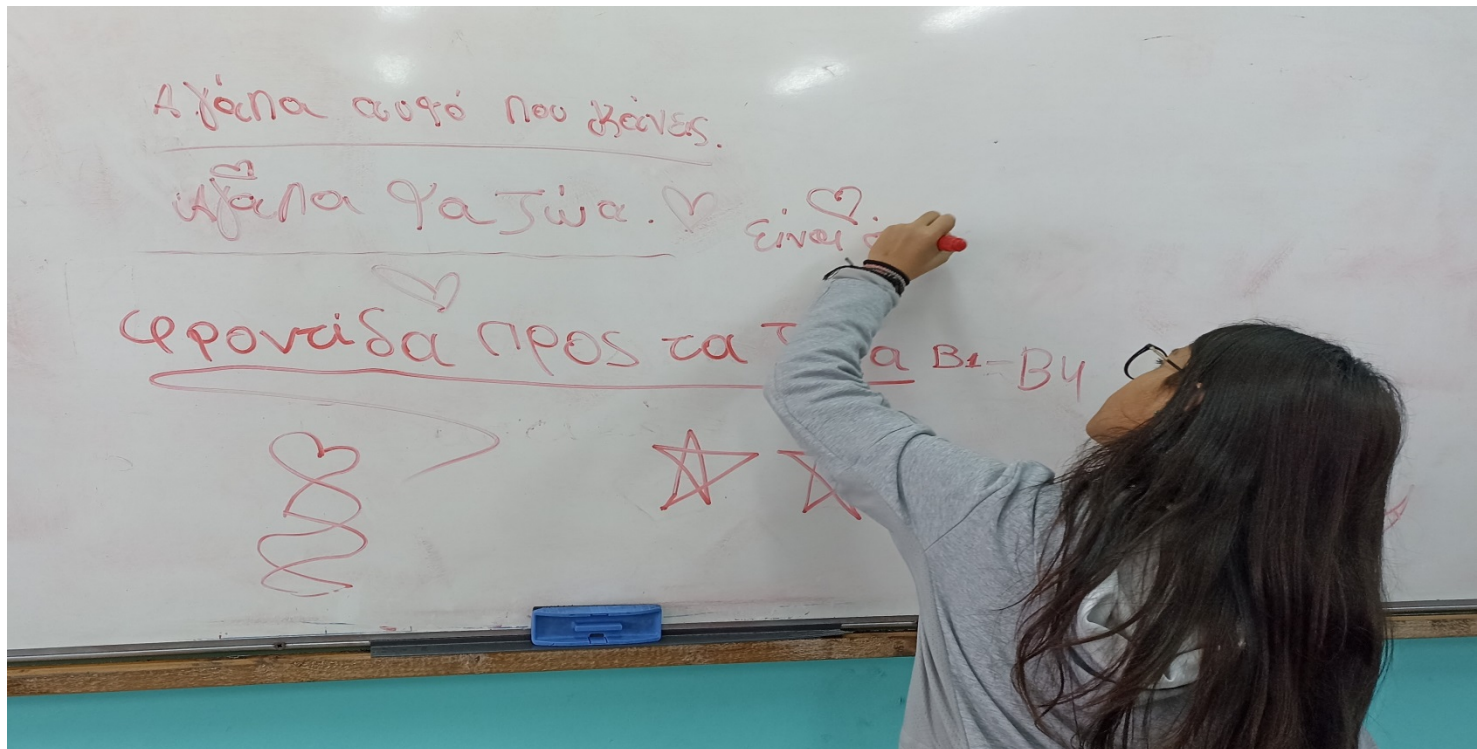 Αγάπα αυτό που κάνεις.
Αγάπα τα ζώα.
είναι
φροντίδα προς τα B1-B4